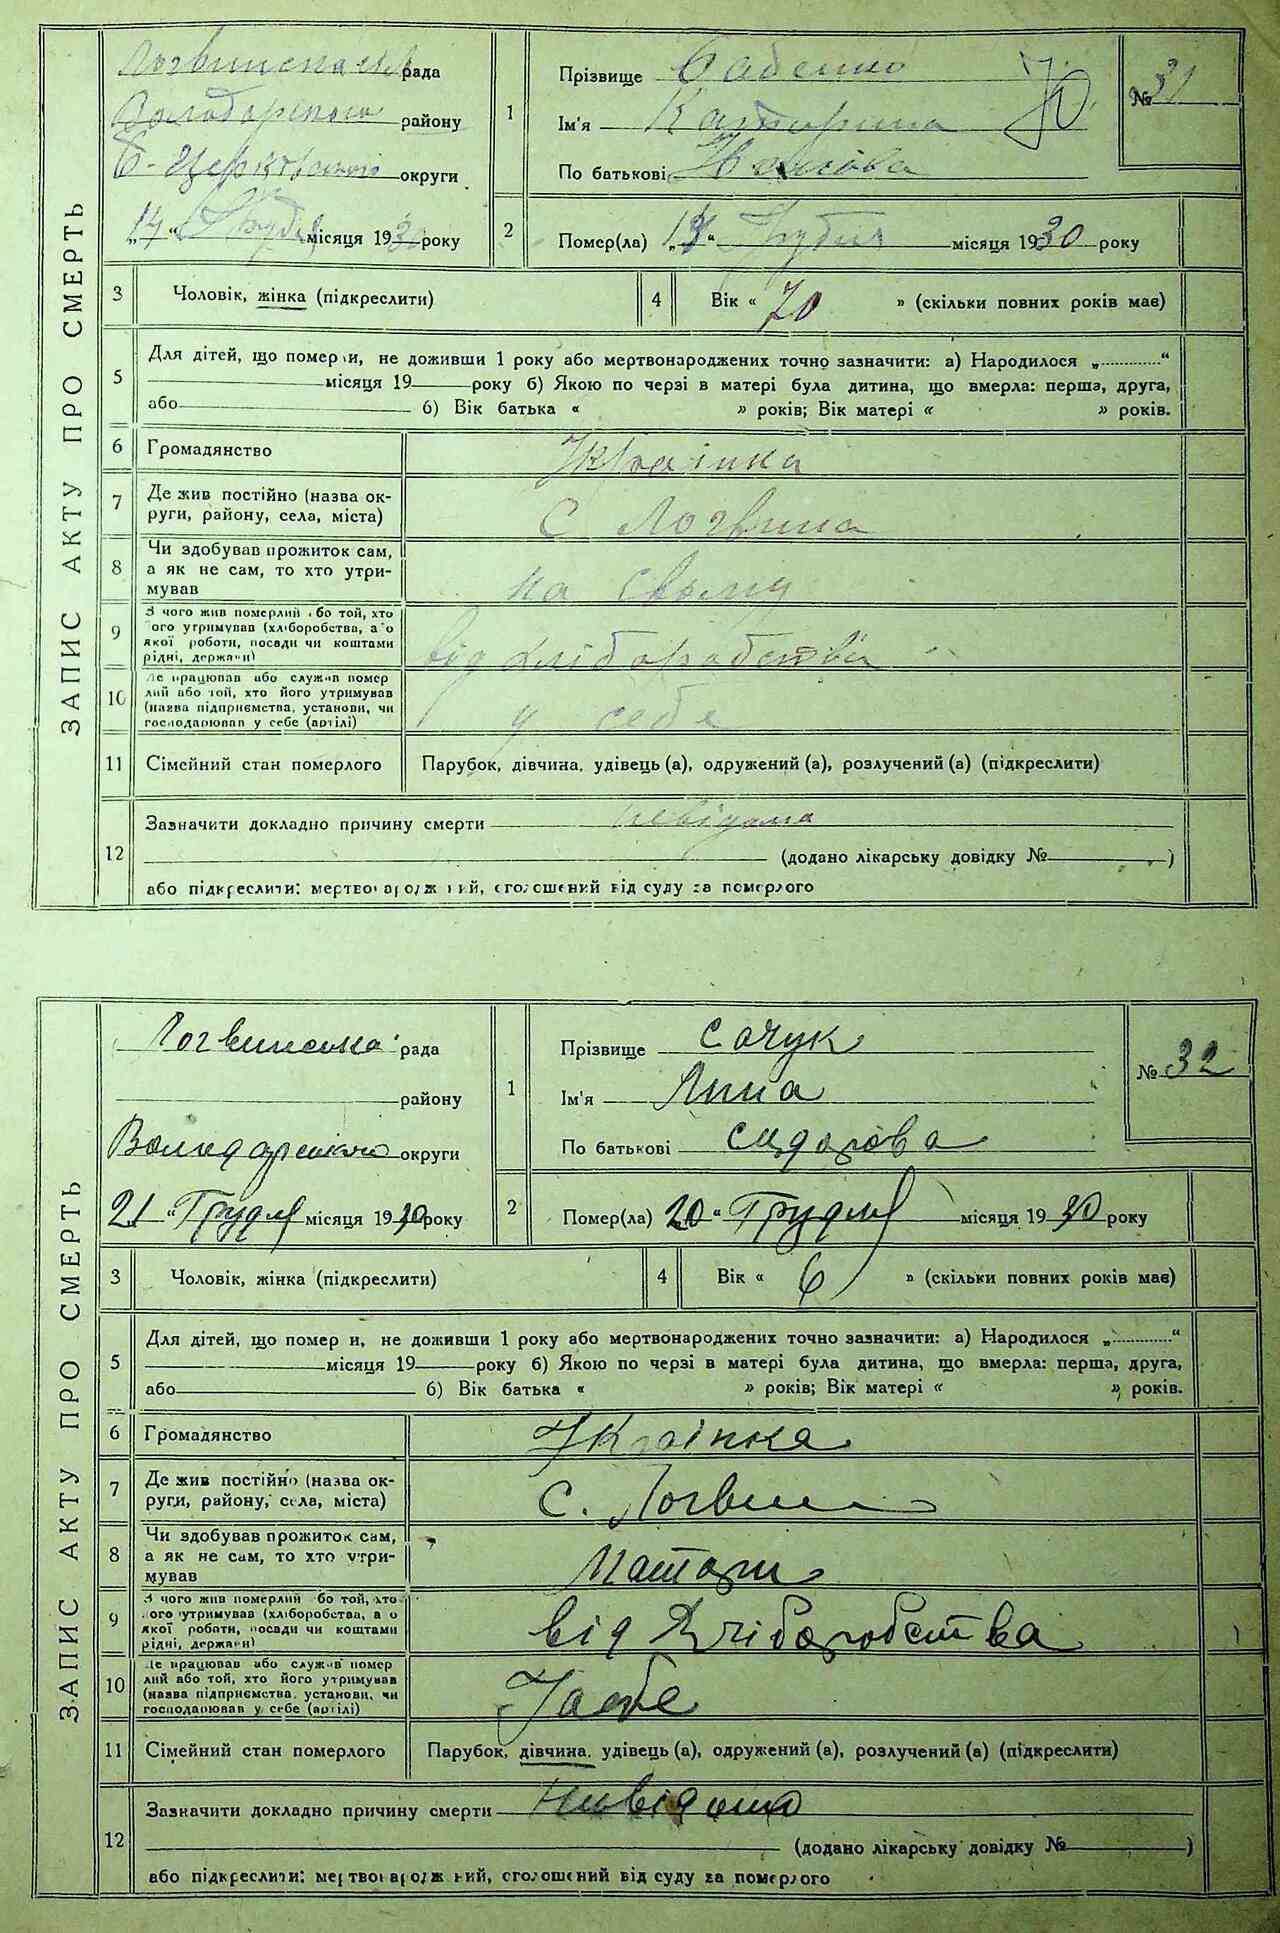 ЗАПИС АКТУ ПРО СМЕРТЬ
Логвинська рада
Володарського району
Б-Церківської округи
„14“ Грудня місяця 1930 року
1
Прізвище Бабенко
Ім'я Катерина
По батькові
№ 31
70
2
Помер(ла) „13“ Грудня місяця 1930 року
3 Чоловік, жінка (підкреслити)
4 Вік « 70 » (скільки повних років має)
5 Для дітей, що померли, не доживши 1 року або мертвонароджених точно зазначити: а) Народилося „...........“
місяця 19 року б) Якою по черзі в матері була дитина, що вмерла: перша, друга,
або б) Вік батька « » років; Вік матері « » років.
6 Громадянство Українка
7 Де жив постійно (назва ок-
руги, району, села, міста) С Логвина
8 Чи здобував прожиток сам,
а як не сам, то хто утри-
мував на свому
9 З чого жив померлий або той, хто
його утримував (хліборобства, або
якої роботи, посади чи коштами
рідні, держави) від хліборобства
10 Де працював або служив помер
лий або той, хто його утримував
(назва підприємства, установи, чи
господарював у себе (артілі) у себе
11 Сімейний стан померлого Парубок, дівчина, удівець (а), одружений (а), розлучений (а) (підкреслити)
12 Зазначити докладно причину смерти невідома
(додано лікарську довідку № )
або підкреслити: мертвонароджений, оголошений від суду за померлого
ЗАПИС АКТУ ПРО СМЕРТЬ
Логвинська рада
району
Володарського округи
21 „Грудня місяця 1930 року
1
Прізвище Сачук
Ім'я Анна
По батькові Сидорова
№ 32
2
Помер(ла) 20 “ Грудня місяця 1930 року
3 Чоловік, жінка (підкреслити)
4 Вік « 6 » (скільки повних років має)
5 Для дітей, що померли, не доживши 1 року або мертвонароджених точно зазначити: а) Народилося „...........“
місяця 19 року б) Якою по черзі в матері була дитина, що вмерла: перша, друга,
або б) Вік батька « » років; Вік матері « » років.
6 Громадянство Українка
7 Де жив постійно (назва ок-
руги, району, села, міста) С. Логвин
8 Чи здобував прожиток сам,
а як не сам, то хто утри-
мував Матери
9 З чого жив померлий або той, хто
його утримував (хліборобства, або
якої роботи, посади чи коштами
рідні, держави) від Хліборобства
10 Де працював або служив помер
лий або той, хто його утримував
(назва підприємства, установи, чи
господарював у себе (артілі) У себе
11 Сімейний стан померлого Парубок, дівчина, удівець (а), одружений (а), розлучений (а) (підкреслити)
12 Зазначити докладно причину смерти Невідома
(додано лікарську довідку № )
або підкреслити: мертвонароджений, оголошений від суду за померлого